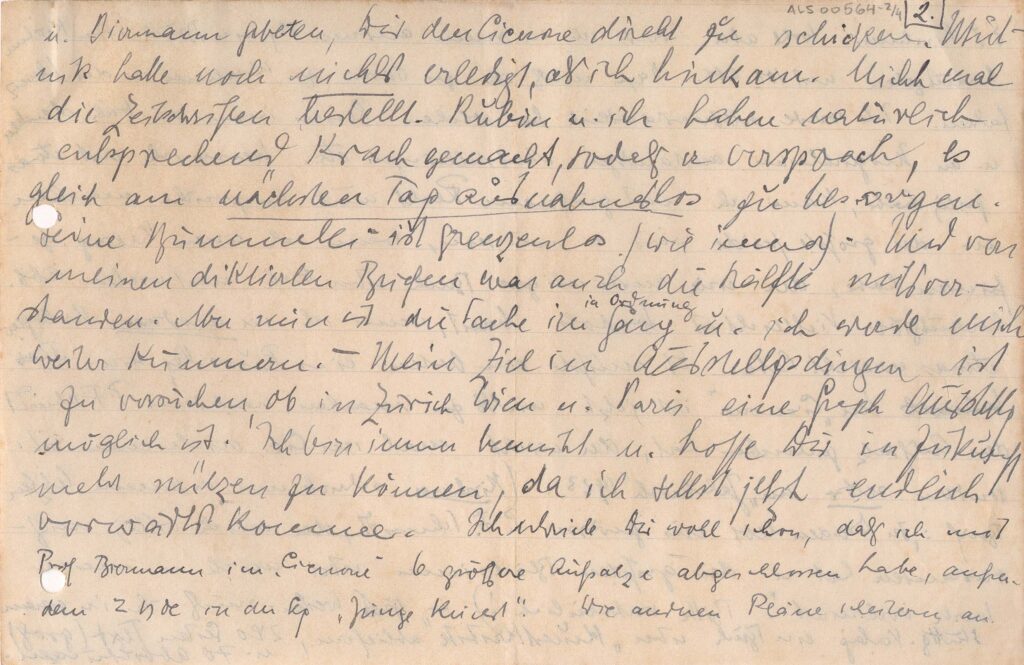 ALS 00564-2/4 2.
u. Biermann gebeten, Dir den Cicerone direkt zu schicken.
nik hatte noch nichts erledigt, als ich hinkam. Nicht mal
die Zeitschriften bestellt. Rubin u. ich haben natürlich
entsprechend Krach gemacht, sodaß er versprach, es
gleich am nächsten Tag ausnahmslos zu besorgen.
Seine Bummelei ist grenzenlos (wie immer). Und von
meinen diktierten Briefen war auch die Hälfte missver-
standen. Aber nun ist die Sache im Gang in Ordnung u. ich werde mich
weiter kümmern. – Mein Ziel in Ausstellgsdingen ist
zu versuchen, ob in Zürich Wien u. Paris eine Graph Ausstellg
möglich ist. Ich bin immer bemüht u. hoffe Dir in Zukunft
mehr nützen zu können, da ich selbst jetzt endlich
vorwärts komme. Ich schrieb Dir wohl schon, daß ich mit
Prof Biermann im "Cicerone" 6 größere Aufsätze abgeschlossen habe, außer-
dem 2 Bde in der "Junge Kunst". Die anderen Pläne scheitern an